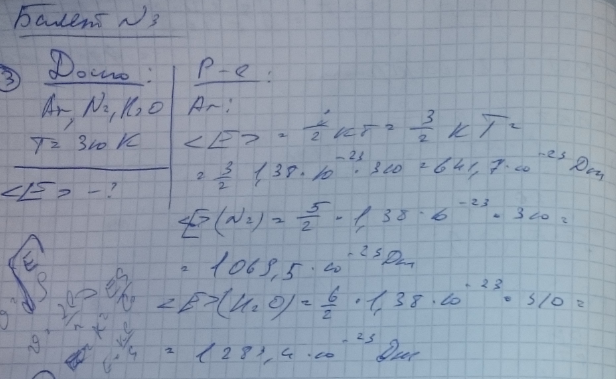 Билет №3
③ Дано:
Ar, N₂, H₂O
T = 310 K
<E> - ?
Р-е:
Ar:
<E> = i/2 kT = 3/2 kT =
= 3/2 · 1,38 · 10⁻²³ · 310 = 641,7 · 10⁻²³ Дж
<E>(N₂) = 5/2 · 1,38 · 10⁻²³ · 310 =
= 1069,5 · 10⁻²³ Дж
<E>(H₂O) = 6/2 · 1,38 · 10⁻²³ · 310 =
= 1283,4 · 10⁻²³ Дж